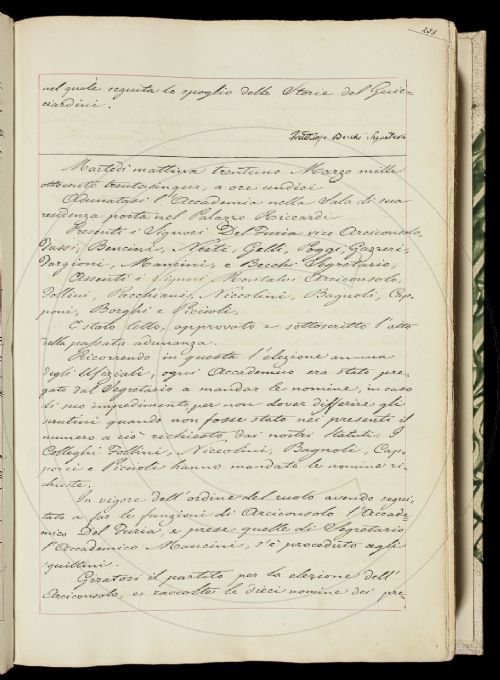 233
nel quale seguita lo spoglio delle Storie del Guic-
ciardini.
Fruttuoso Becchi Segretario
Martedì mattina trentuno Marzo mille
ottocento trentacinque, a ore undici
Adunatasi l'Accademia nella Sala di sua
residenza posta nel Palazzo Riccardi
Presenti i Signori Del Furia vice Arciconsolo,
Tassi, Bencini, Nesti, Gelli, Poggi, Gazzeri,
Targioni, Mancini, e Becchi Segretario,
Assenti i Signori Montalvi Arciconsolo,
Follini, Pacchiani, Niccolini, Bagnoli, Cap-
poni, Borghi e Piccioli,
È stato letto, approvato e sottoscritto l'atto
della passata adunanza.
Ricorrendo in questa l'elezione annua
degli Ufiziali, ogni Accademico era stato pre-
gato dal Segretario a mandar le nomine, in caso
di suo impedimento, per non dover differire gli
scrutini quando non fosse stato nei presenti il
numero a ciò richiesto dai nostri Statuti. I
Colleghi Follini, Niccolini, Bagnoli, Cap-
poni e Piccioli hanno mandato le nomine ri-
chieste.
In vigore dell'ordine del ruolo avendo segui-
tato a far le funzioni di Arciconsolo l'Accade-
mico Del Furia, e prese quelle di Segretario
l'Accademico Mancini, s'è proceduto agli
squittini.
Giratosi il partito per la elezione dell'
Arciconsolo, e raccolte le dieci nomine dei pre-